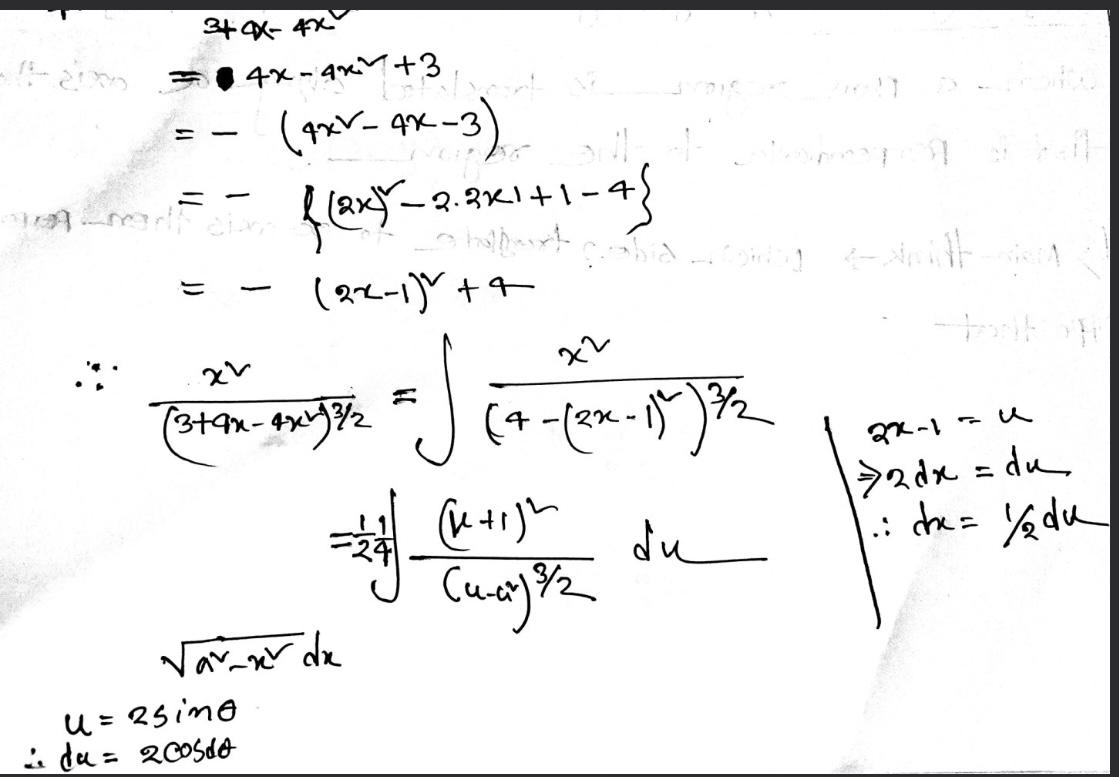 3+4x-4x²
= 4x-4x²+3
= - (4x²-4x-3)
= - {(2x)²-2.2x1+1-4}
= - (2x-1)²+4
∴ x²/(3+4x-4x²)^3/2 = ∫ x²/(4-(2x-1)²)^3/2
2x-1 = u
⇒2dx = du
∴ dx = 1/2 du
= 1/2 1/4 ∫ (u+1)²/(4-u²)^3/2 du
√a²-x² dx
u = 2sinθ
∴ du = 2cosdθ